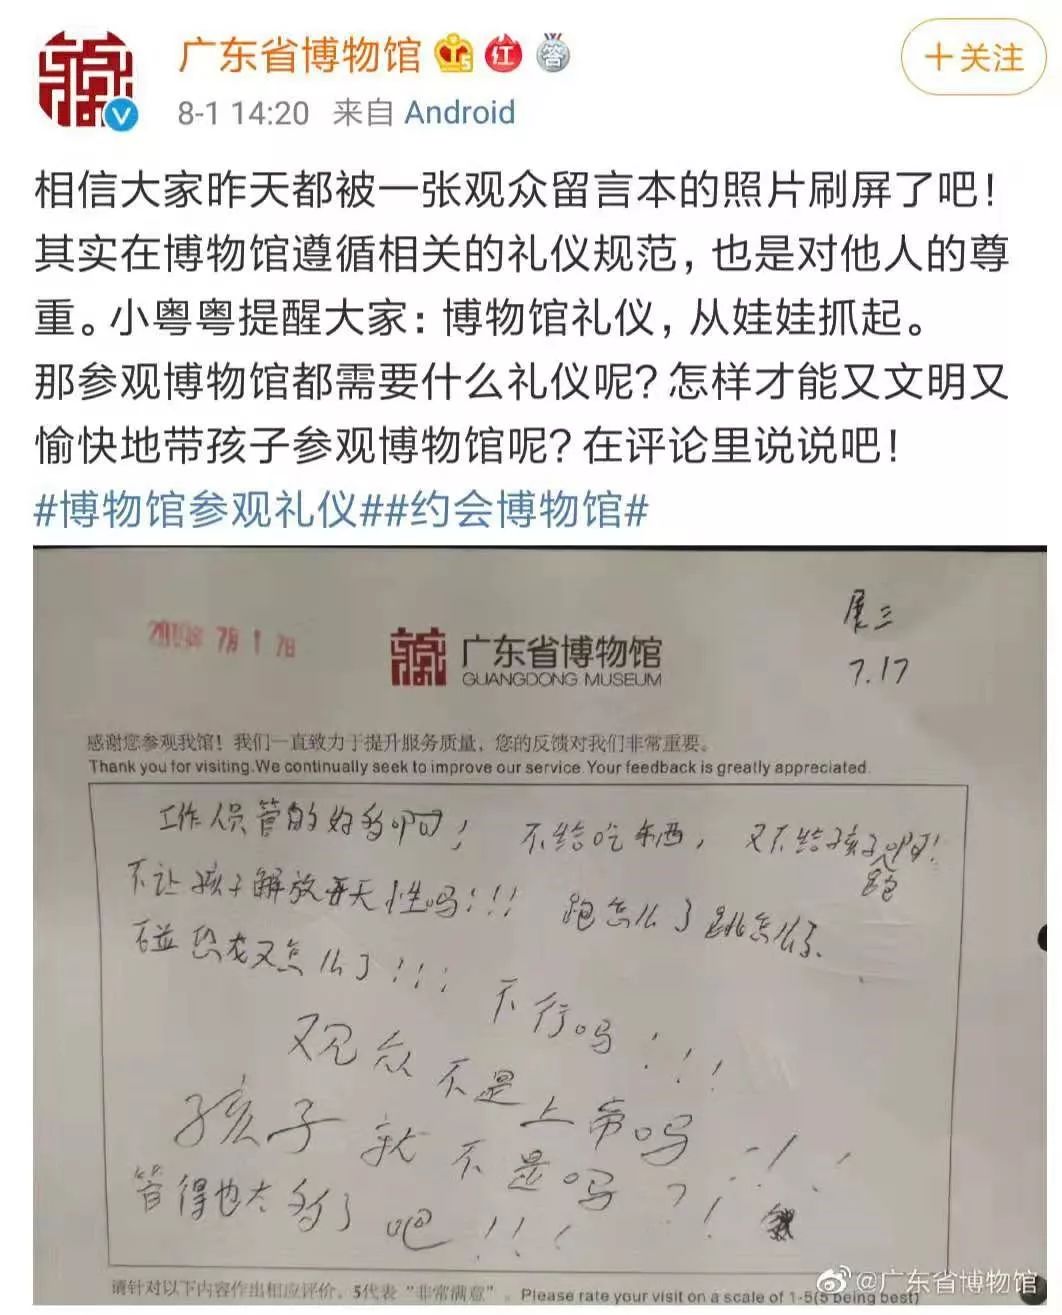 广东省博物馆
+关注
8-1 14:20 来自 Android
相信大家昨天都被一张观众留言本的照片刷屏了吧!
其实在博物馆遵循相关的礼仪规范,也是对他人的尊
重。小粤粤提醒大家:博物馆礼仪,从娃娃抓起。
那参观博物馆都需要什么礼仪呢?怎样才能又文明又
愉快地带孩子参观博物馆呢?在评论里说说吧!
#博物馆参观礼仪##约会博物馆#
2019年 7月 17日
广东省博物馆
GUANGDONG MUSEUM
展三
7.17
感谢您参观我馆!我们一直致力于提升服务质量,您的反馈对我们非常重要。
Thank you for visiting.We continually seek to improve our service.Your feedback is greatly appreciated.
工作人员管的好多啊! 不给吃东西, 又不给孩子跑啊!
不让孩子解放天性吗!!! 跑怎么了跳怎么了.
碰恐龙又怎么了!!! 不行吗!!!
观众不是上帝吗!!!
孩子就不是吗?!
管得也太多了吧!!!
请针对以下内容作出相应评价,5代表“非常满意”。Please rate your visit on a scale of 1-5(5 being best)
@广东省博物馆